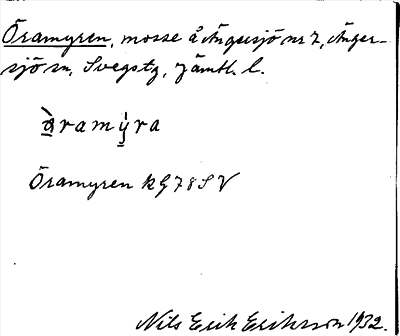 Öramyren, mosse å Ängersjö nr 7, Änger-
sjö sn, Svegs tg, Jämtl. l.
öramyra
Öramyren k G 78 S V
Nils Erik Eriksson 1932.